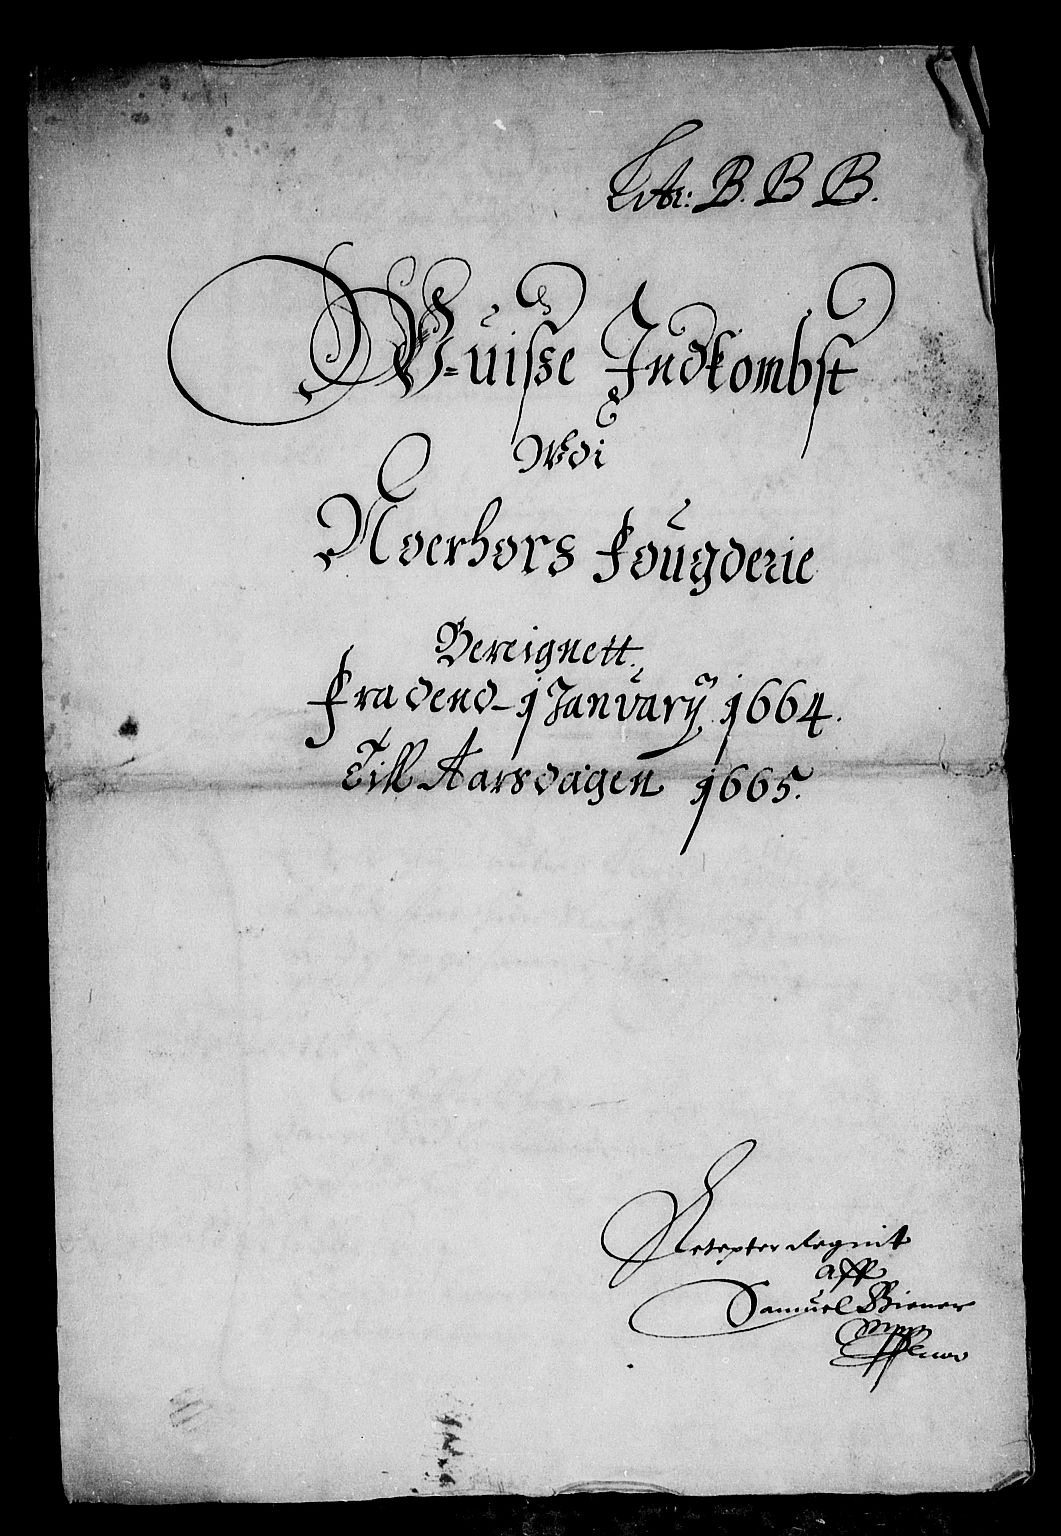 Litr: B. B B.
W-uisse Indkombst
Wdi
Noerhors Fougderie
Bereignett.
Fra dend 1 January 1664.
Till Aarsdagen 1665.
aff
Samuel Biener